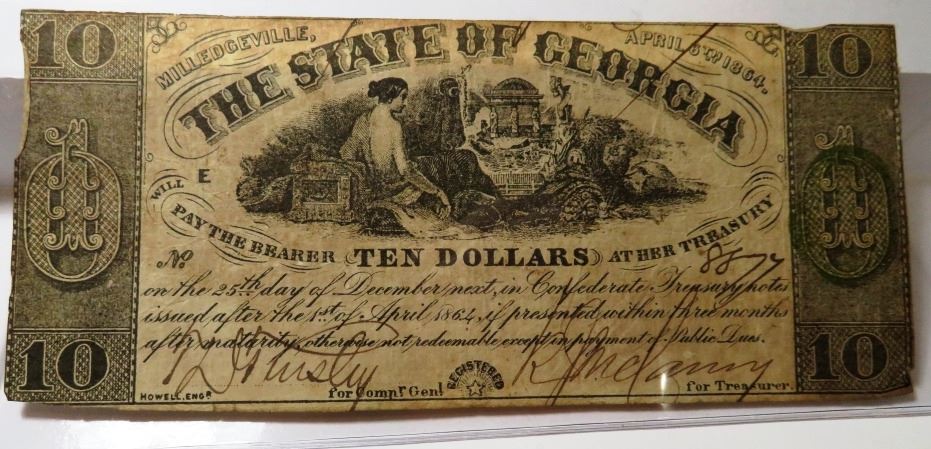 10 10
MILLEDGEVILLE, APRIL 6TH 1864.
THE STATE OF GEORGIA
E
WILL
PAY THE BEARER TEN DOLLARS AT HER TREASURY
No 8877
on the 25th day of December next, in Confederate Treasury notes
issued after the 1st of April 1864, if presented within three months
after maturity, otherwise not redeemable except in payment of Public Dues.
10 10
for Compr Genl REGISTERED for Treasurer.
HOWELL, ENGR